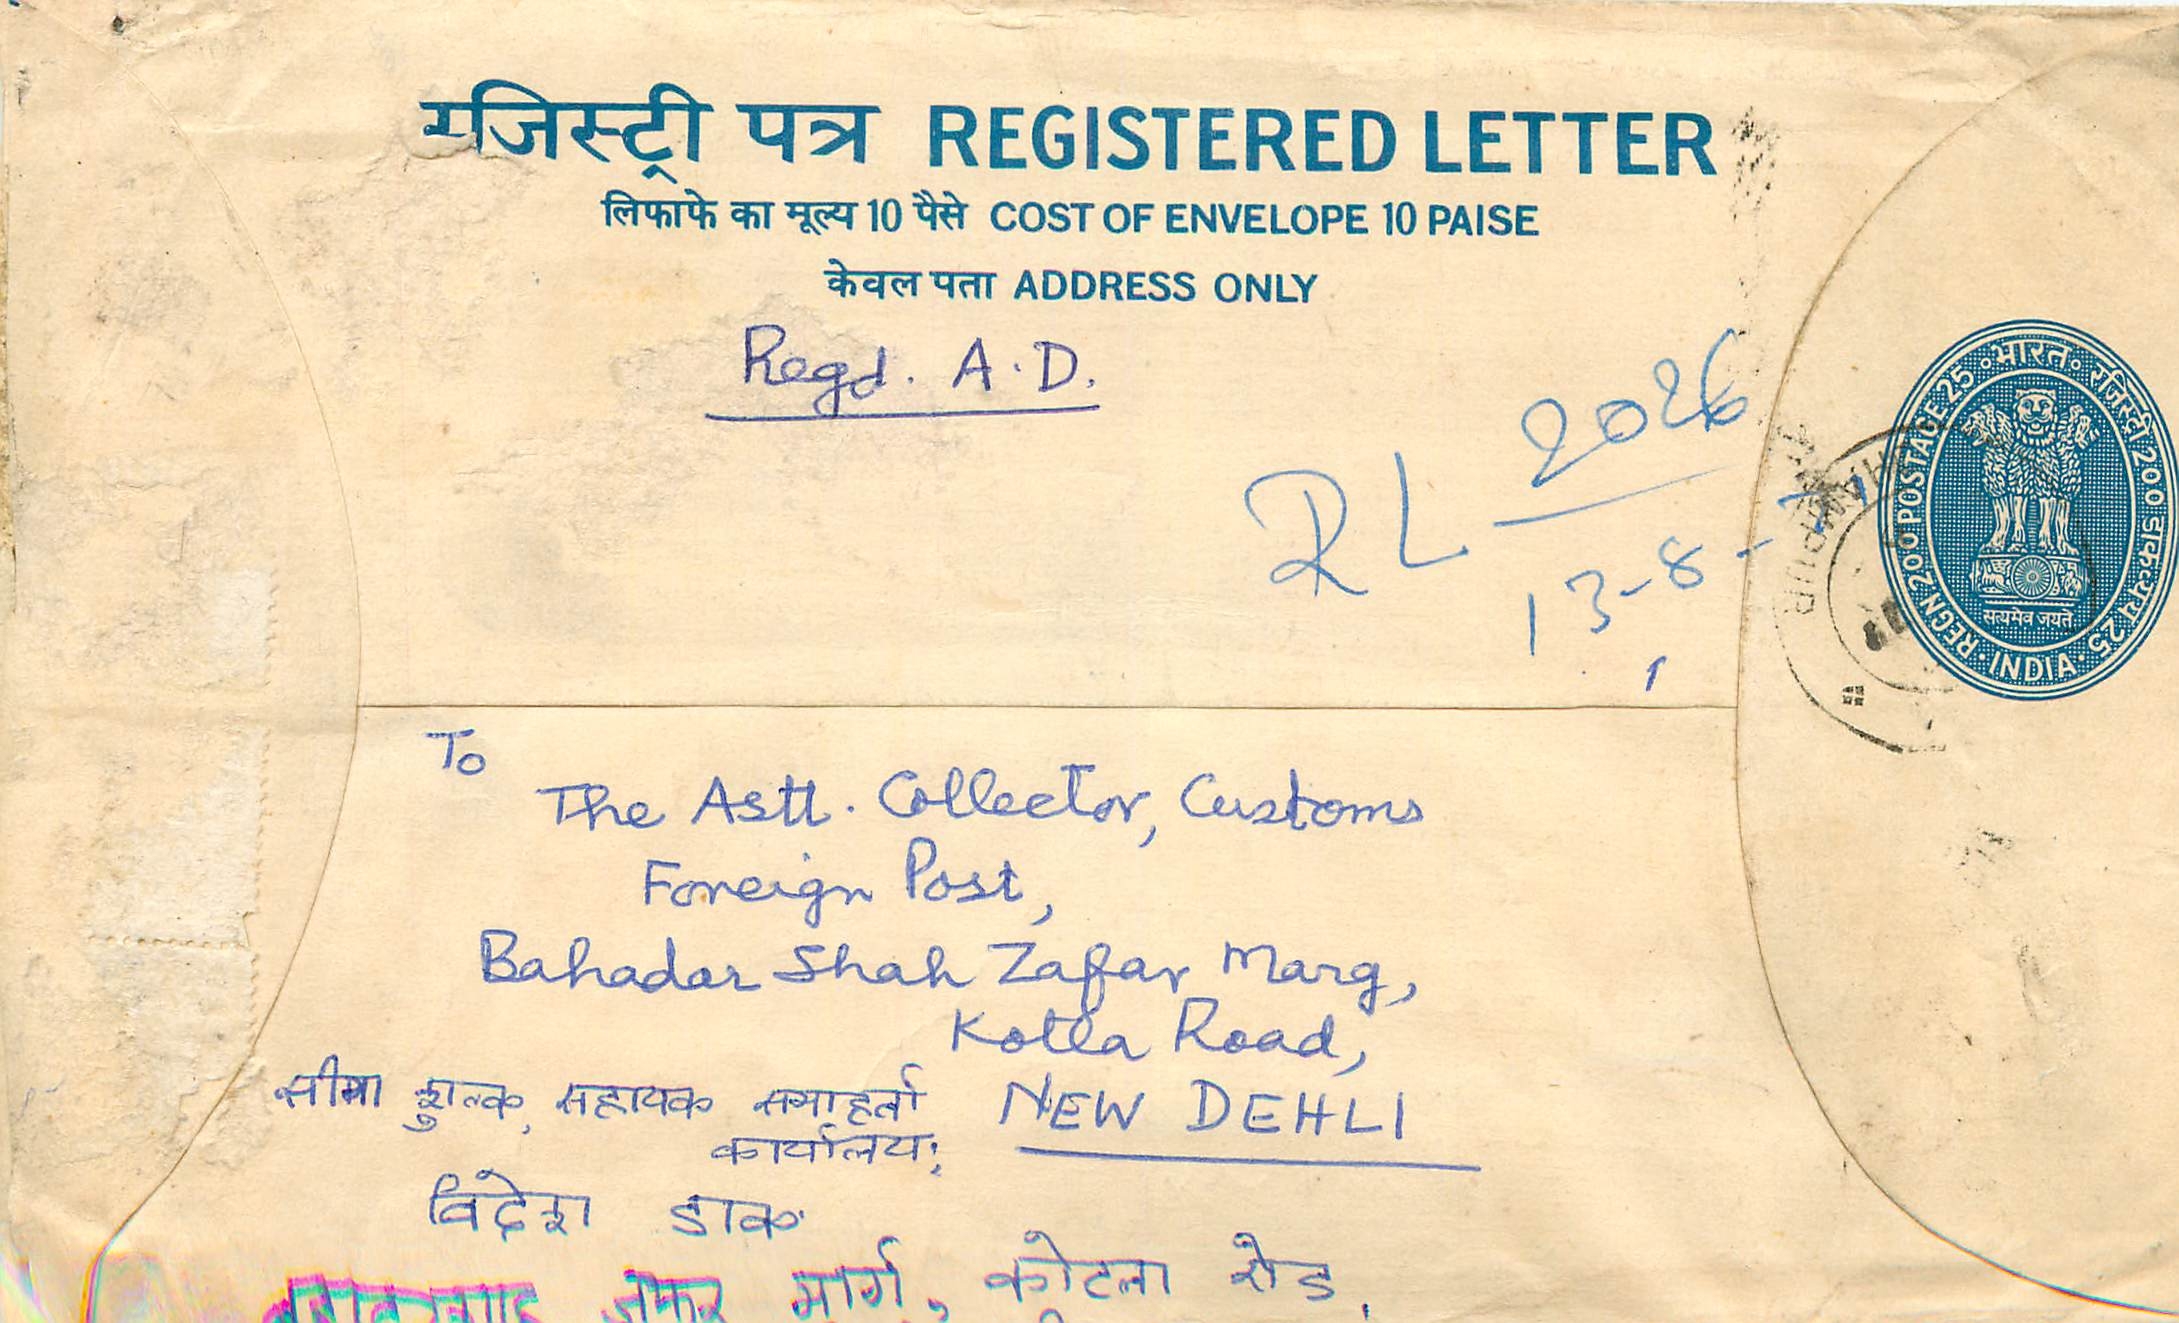 रजिस्ट्री पत्र REGISTERED LETTER
लिफाफे का मूल्य 10 पैसे COST OF ENVELOPE 10 PAISE
केवल पता ADDRESS ONLY
Regd. A.D.
RL 2026
13-8-
भारत रजिस्ट्री 200 डाकव्यय 25
REGN 200 POSTAGE 25
सत्यमेव जयते
INDIA
To
The Astt. Collector, Customs
Foreign Post,
Bahadar Shah Zafar Marg,
Kotla Road,
NEW DEHLI
सीमा शुल्क, सहायक समाहर्ता
कार्यालय;
विदेश डाक
जफर मार्ग, कोटला रोड,